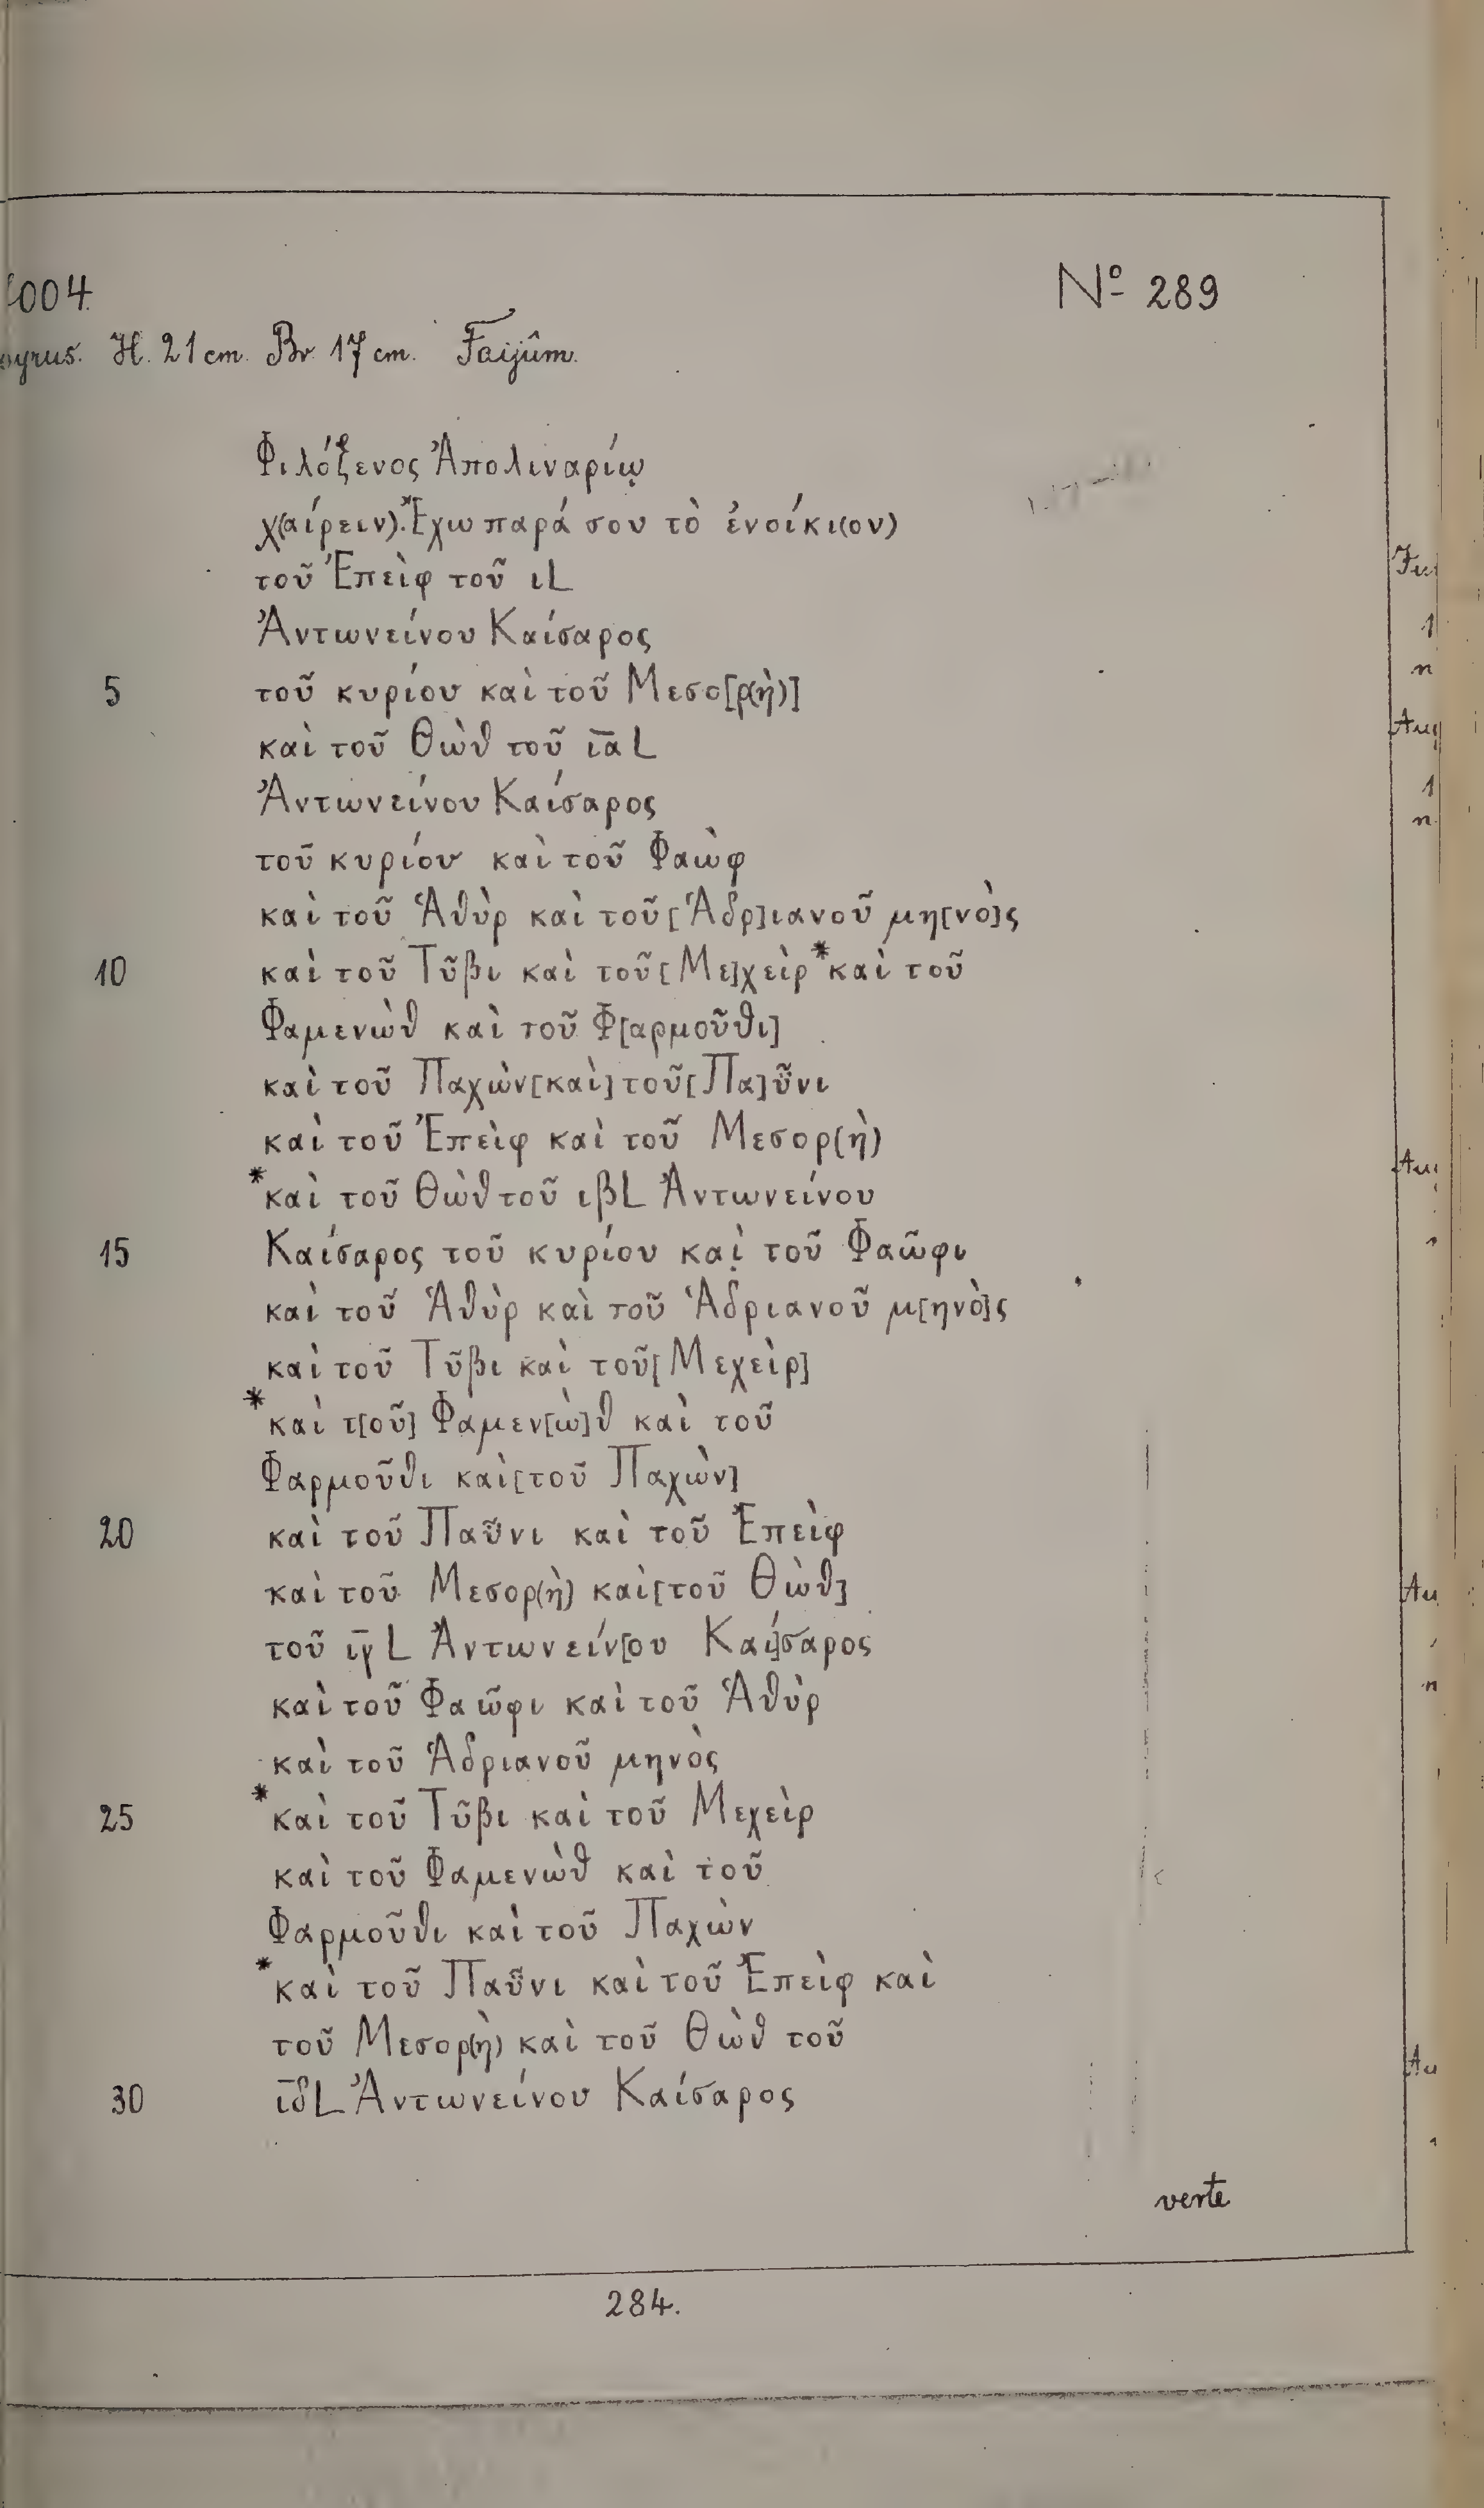 004. Nº 289
H. 21 cm. Br 17 cm. Faijûm.
Φιλόξενος Ἀπολιναρίῳ
χ(αίρειν). Ἔχω παρά σου τὸ ἐνοίκι(ον)
τοῦ Ἐπεὶφ τοῦ ιL
Ἀντωνείνου Καίσαρος
5 τοῦ κυρίου καὶ τοῦ Μεσο[ρ(ὴ)]
καὶ τοῦ Θὼθ τοῦ ι̅α̅ L
Ἀντωνείνου Καίσαρος
τοῦ κυρίου καὶ τοῦ Φαὼφ
καὶ τοῦ Ἁθὺρ καὶ τοῦ [Ἁδρ]ιανοῦ μη[νὸ]ς
10 καὶ τοῦ Τῦβι καὶ τοῦ [Με]χεὶρ *καὶ τοῦ
Φαμενὼθ καὶ τοῦ Φ[αρμοῦθι]
καὶ τοῦ Παχὼν [καὶ] τοῦ [Πα]ῦνι
καὶ τοῦ Ἐπεὶφ καὶ τοῦ Μεσορ(ὴ)
*καὶ τοῦ Θὼθ τοῦ ιβL Ἀντωνείνου
15 Καίσαρος τοῦ κυρίου καὶ̣ τοῦ Φαῶφι
καὶ τοῦ Ἁθὺρ καὶ τοῦ Ἁδριανοῦ μ[ηνὸ]ς
καὶ τοῦ Τῦβι καὶ τοῦ [Μεχεὶρ]
*καὶ τ[οῦ] Φαμεν[ὼ]θ καὶ τοῦ
Φαρμοῦθι καὶ [τοῦ Παχὼν]
20 καὶ τοῦ Παῦνι καὶ τοῦ Ἐπεὶφ
καὶ τοῦ Μεσορ(ὴ) καὶ [τοῦ Θὼθ]
τοῦ ι̅γ̅ L Ἀντωνείν[ου Και]σαρος
καὶ τοῦ Φαῶφι καὶ τοῦ Ἁθὺρ
καὶ τοῦ Ἁδριανοῦ μηνὸς
25 *καὶ τοῦ Τῦβι καὶ τοῦ Μεχεὶρ
καὶ τοῦ Φαμενὼθ καὶ τοῦ
Φαρμοῦθι καὶ τοῦ Παχὼν
*καὶ τοῦ Παῦνι καὶ τοῦ Ἐπεὶφ καὶ
τοῦ Μεσορ(ὴ) καὶ τοῦ Θὼθ τοῦ
30 ι̅δ̅L Ἀντωνείνου Καίσαρος
verte
284.